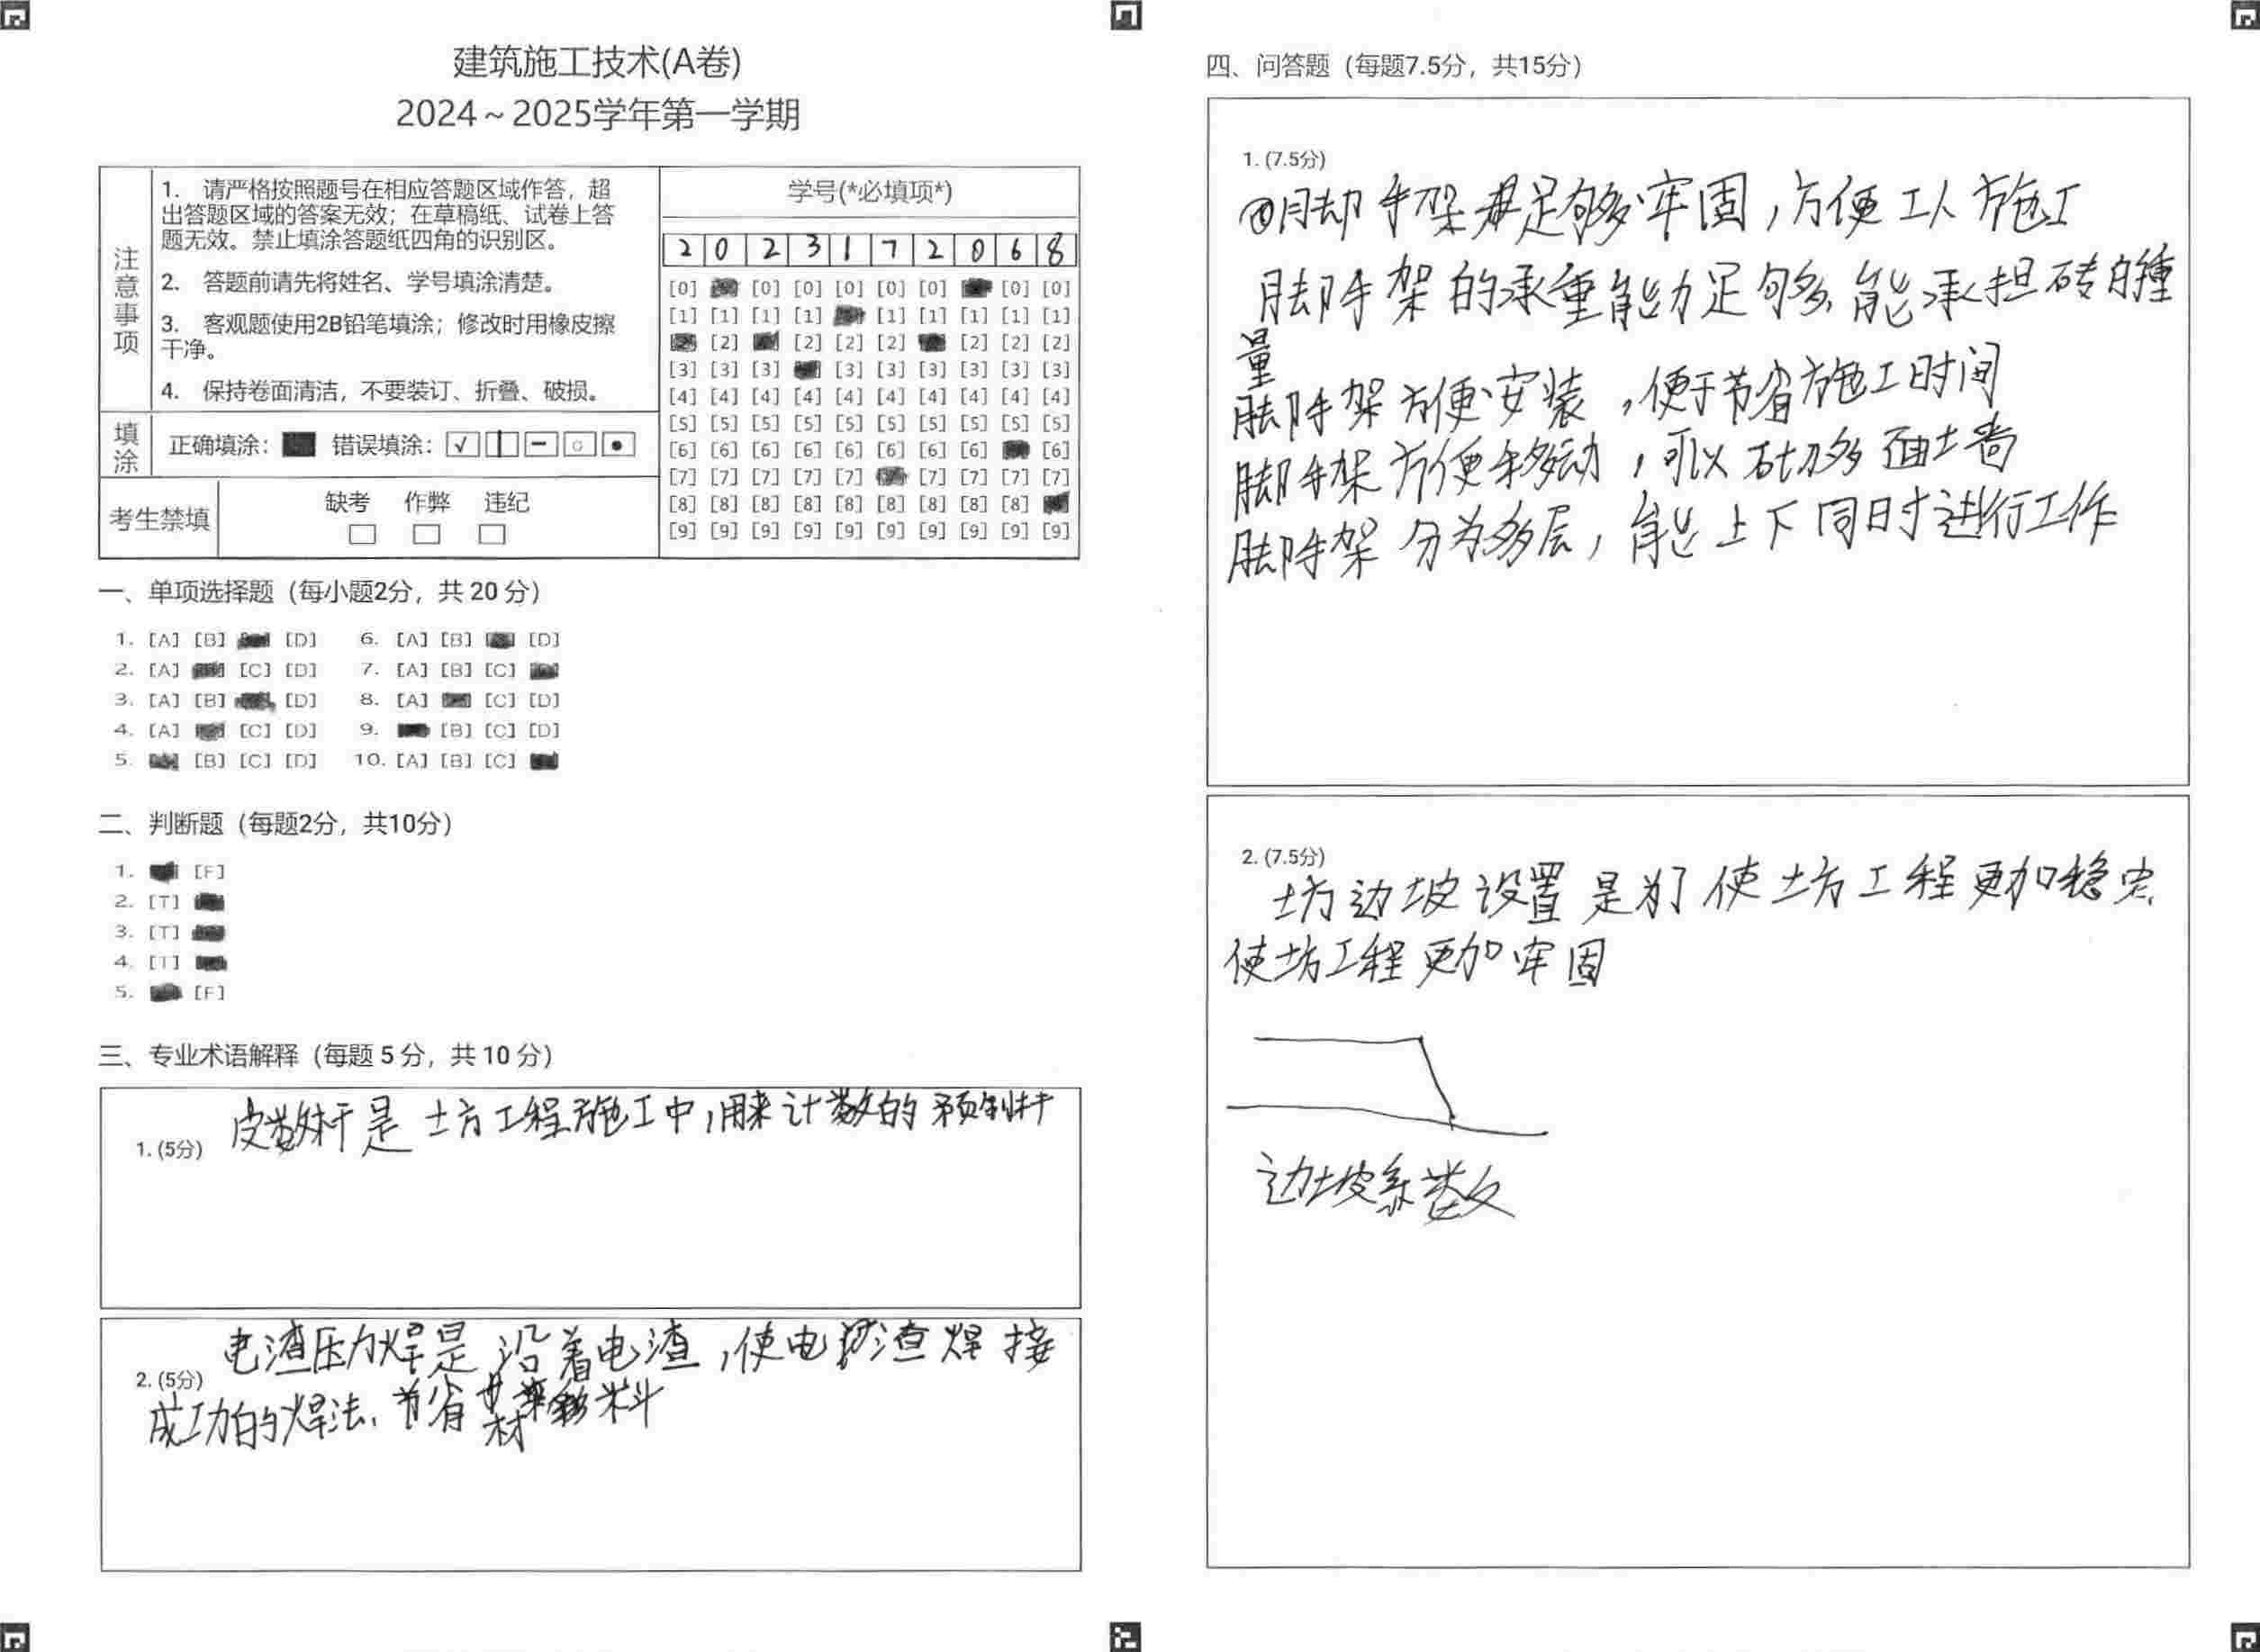 建筑施工技术(A卷)
2024～2025学年第一学期
注意事项
1. 请严格按照题号在相应答题区域作答，超
出答题区域的答案无效；在草稿纸、试卷上答
题无效。禁止填涂答题纸四角的识别区。
2. 答题前请先将姓名、学号填涂清楚。
3. 客观题使用2B铅笔填涂；修改时用橡皮擦
干净。
4. 保持卷面清洁，不要装订、折叠、破损。
填涂 正确填涂： 错误填涂：
考生禁填 缺考 作弊 违纪
学号(*必填项*)
2 0 2 3 1 7 2 0 6 8
[0] [0] [0] [0] [0] [0] [0] [0]
[1] [1] [1] [1] [1] [1] [1] [1] [1]
[2] [2] [2] [2] [2] [2] [2]
[3] [3] [3] [3] [3] [3] [3] [3] [3]
[4] [4] [4] [4] [4] [4] [4] [4] [4] [4]
[5] [5] [5] [5] [5] [5] [5] [5] [5] [5]
[6] [6] [6] [6] [6] [6] [6] [6] [6]
[7] [7] [7] [7] [7] [7] [7] [7] [7]
[8] [8] [8] [8] [8] [8] [8] [8] [8]
[9] [9] [9] [9] [9] [9] [9] [9] [9] [9]
一、单项选择题（每小题2分，共 20 分）
1. [A] [B] [D] 6. [A] [B] [D]
2. [A] [C] [D] 7. [A] [B] [C]
3. [A] [B] [D] 8. [A] [C] [D]
4. [A] [C] [D] 9. [B] [C] [D]
5. [B] [C] [D] 10. [A] [B] [C]
二、判断题（每题2分，共10分）
1. [F]
2. [T]
3. [T]
4. [T]
5. [F]
三、专业术语解释（每题 5 分，共 10 分）
1. (5分) 皮数杆是土方工程施工中，用来计数的预制杆
2. (5分) 电渣压力焊是沿着电渣，使电渣焊接
成功的焊法、节省材料
四、问答题（每题7.5分，共15分）
1. (7.5分)
脚手架足够牢固，方便工人施工
脚手架的承重能力足够，能承担砖的重
量
脚手架方便安装，便于节省施工时间
脚手架方便移动，可以砌多面墙
脚手架分为多层，能上下同时进行工作
2. (7.5分)
土方边坡设置是为了使土方工程更加稳定
使土方工程更加牢固
边坡系数